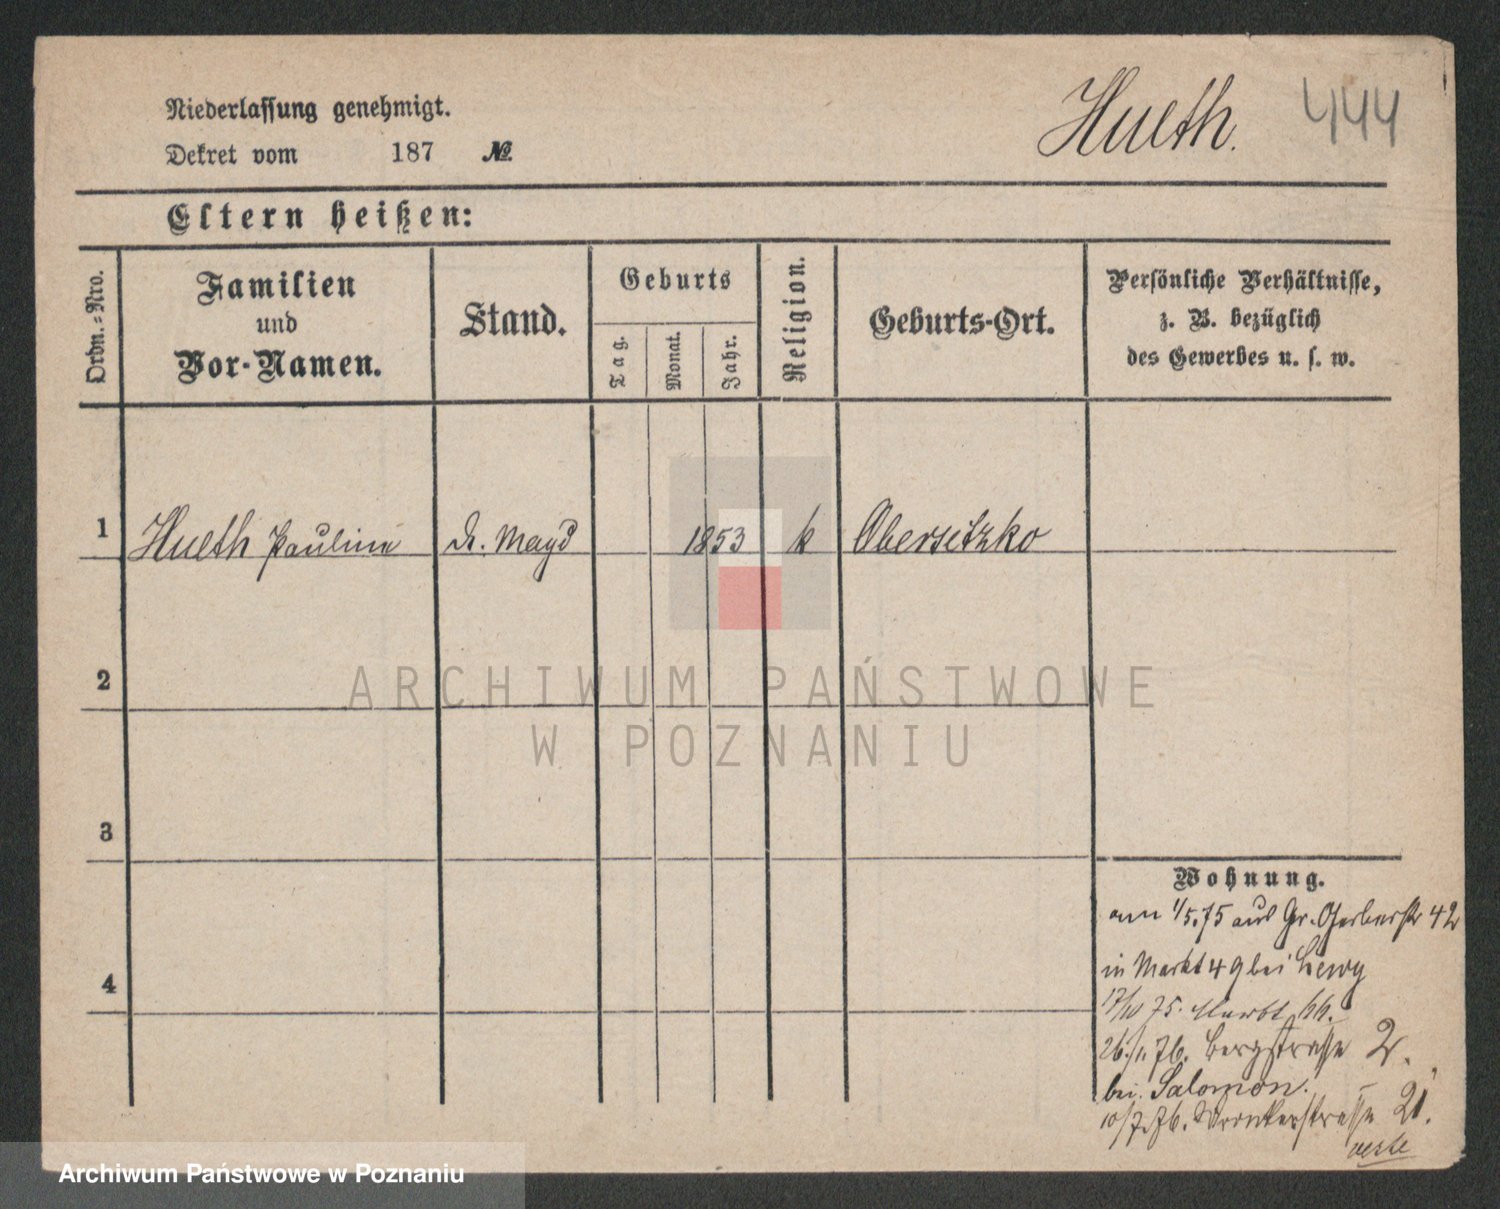 Niederlassung genehmigt.
Dekret vom 187 №
Hueth. 444
Eltern heißen:
Ordn.-Nro.
Familien
und
Vor-Namen.
Stand.
Geburts
Tag.
Monat.
Jahr.
Religion.
Geburts-Ort.
Persönliche Verhältnisse,
z. B. bezüglich
des Gewerbes u. s. w.
1 Hueth Pauline d. Magd 1853 k Obersitzko
2
ARCHIWUM PAŃSTWOWE
W POZNANIU
3
4
Wohnung.
am 1/5.75 aus Gr. Gerberstr 42
in Markt 49 bei Lewy
17/10 75. Markt 66.
26./1. 76. Bergstrasse 2.
bei Salomon.
10/7.76. Wronkerstrasse 21.
Archiwum Państwowe w Poznaniu